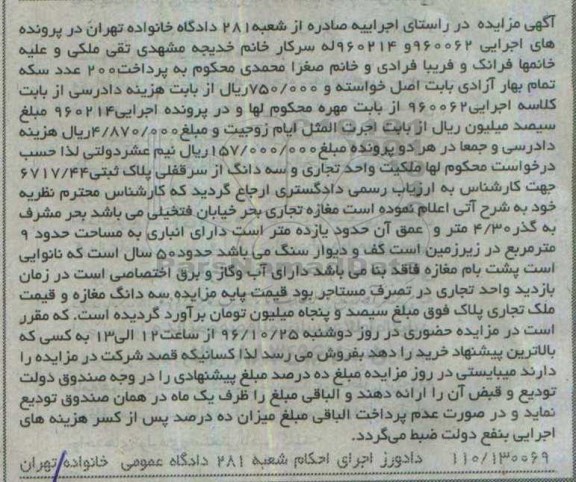 آگهی مزایده در راستای اجراییه صادره از شعبه۲۸۱ دادگاه خانواده تهران در پرونده
های اجرایی ۹۶۰۰۶۲و ۹۶۰۲۱۴له سرکار خانم خدیجه مشهدی تقی ملکی و علیه
خانمها فرانک و فریبا فرادی و خانم صغرا محمدی محکوم به پرداخت۲۰۰ عدد سکه
تمام بهار آزادی بابت اصل خواسته و ۷۵۰/۰۰۰ریال از بابت هزینه دادرسی از بابت
کلاسه اجرایی۹۶۰۰۶۲ از بابت مهره محکوم لها و در پرونده اجرایی۹۶۰۲۱۴ مبلغ
سیصد میلیون ریال از بابت اجرت المثل ایام زوجیت و مبلغ۴/۸۷۰/۰۰۰ریال هزینه
دادرسی و جمعا در هر دو پرونده مبلغ۱۵۷/۰۰۰/۰۰۰ریال نیم عشردولتی لذا حسب
درخواست محکوم لها ملکیت واحد تجاری و سه دانگ از سرقفلی پلاک ثبتی۶۷۱۷/۴۴
جهت کارشناس به ارزیاب رسمی دادگستری ارجاع گردید که کارشناس محترم نظریه
خود به شرح آتی اعلام نموده است مغازه تجاری بحر خیابان فتخیلی می باشد بحر مشرف
به گذر۴/۳۰ متر و عمق آن حدود یازده متر است دارای انباری به مساحت حدود ۹
مترمربع در زیرزمین است کف و دیوار سنگ می باشد حدود۵۰ سال است که نانوایی
است پشت بام مغازه فاقد بنا می باشد دارای آب وگاز و برق اختصاصی است در زمان
بازدید واحد تجاری در تصرف مستاجر بود قیمت پایه مزایده سه دانگ مغازه و قیمت
ملک تجاری پلاک فوق مبلغ سیصد و پنجاه میلیون تومان برآورد گردیده است. که مقرر
است در مزایده حضوری در روز دوشنبه ۹۶/۱۰/۲۵ از ساعت۱۲ الی۱۳ به کسی که
بالاترین پیشنهاد خرید را دهد بفروش می رسد لذا کسانیکه قصد شرکت در مزایده را
دارند میبایستی در روز مزایده مبلغ ده درصد مبلغ پیشنهادی را در وجه صندوق دولت
تودیع و قبض آن را ارائه دهند و الباقی مبلغ را ظرف یک ماه در همان صندوق تودیع
نماید و در صورت عدم پرداخت الباقی مبلغ میزان ده درصد پس از کسر هزینه های
اجرایی بنفع دولت ضبط می‌گردد.
۱۱۰/۱۳۰۰۶۹ دادورز اجرای احکام شعبه ۲۸۱ دادگاه عمومی خانواده تهران